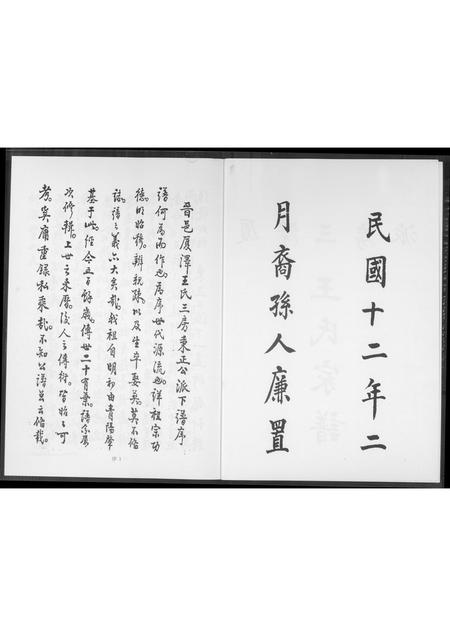 民國十二年二
月裔孫人廉置
晉邑厦澤王氏三房東正公派下譜序
譜何為而作也為序世代源流也詳祖宗功
德明昭穆辨親疎以及生卒娶葬莫不偹
誌譜之義亦大矣哉我祖自明初由青陽肇
基于此經今五百餘歲傳世二十有葉譜分屢
次修輯上世之来歷後人之傳衍皆始之可
考奚庸重錄私乘哉不知公譜豈云偹哉